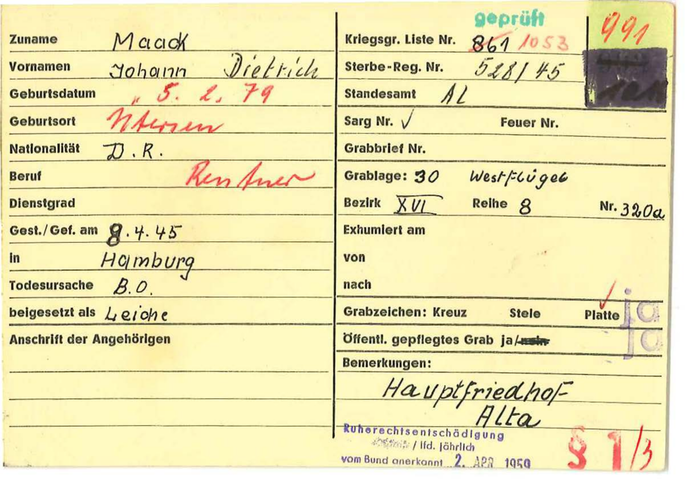 geprüft
991
Zuname Maack
Vornamen Johann Dietrich
Geburtsdatum 5. 2. 79
Geburtsort Utersen
Nationalität D. R.
Beruf Rentner
Dienstgrad
Gest./Gef. am 8.4.45
in Hamburg
Todesursache B.O.
beigesetzt als Leiche
Anschrift der Angehörigen
Kriegsgr. Liste Nr. 861 1053
Sterbe-Reg. Nr. 528/45
Standesamt AL
Sarg Nr. ✓ Feuer Nr.
Grabbrief Nr.
Grablage: 30 Westflügel
Bezirk XVI Reihe 8 Nr. 320a
Exhumiert am
von
nach
Grabzeichen: Kreuz Stele Platte ja
Öffentl. gepflegtes Grab ja/nein ja
Bemerkungen:
Hauptfriedhof
Alta
Ruherechtsentschädigung
/ lfd. jährlich
vom Bund anerkannt 2. APR 1959
§ 1/3